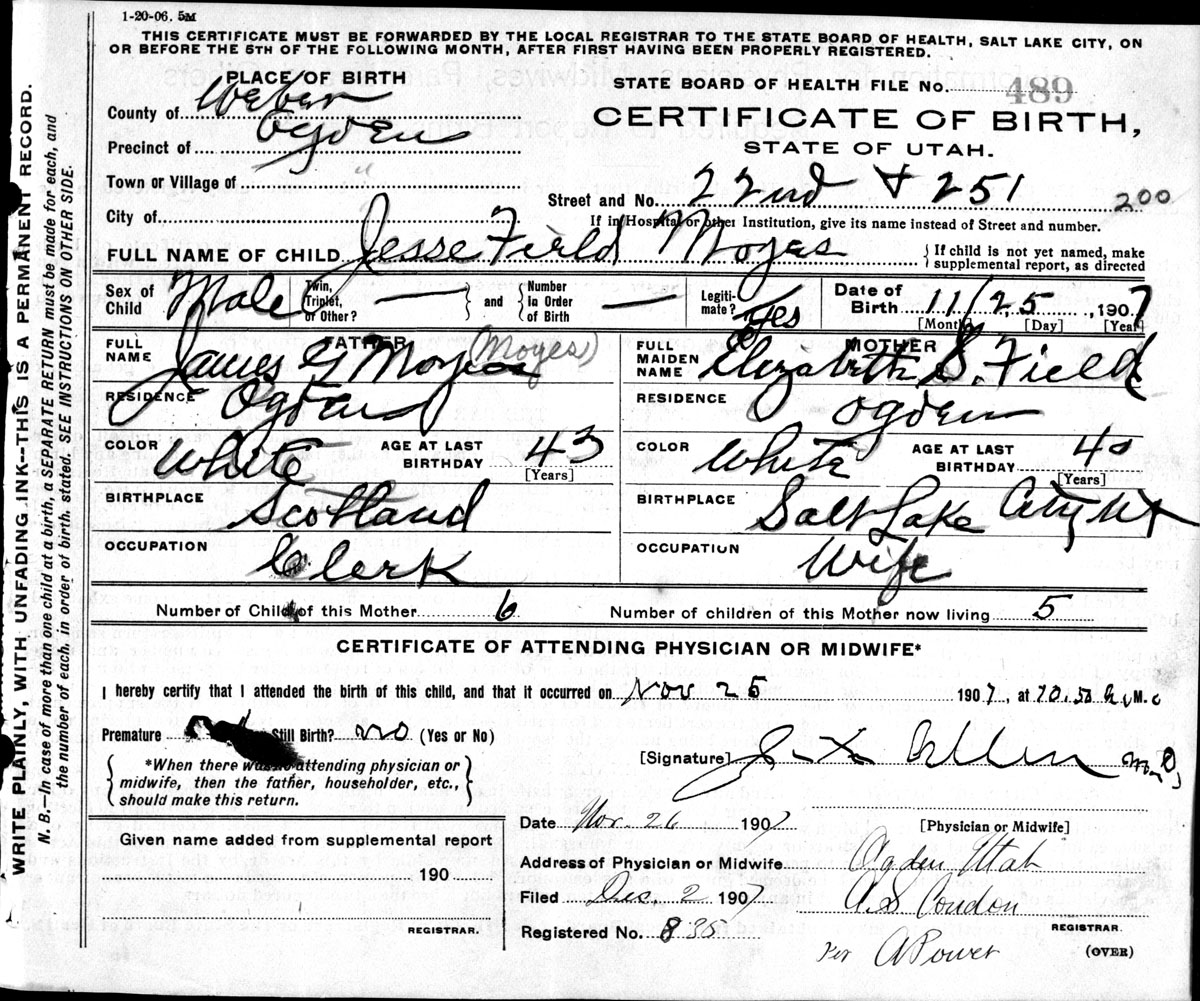 1-20-06. 5M
THIS CERTIFICATE MUST BE FORWARDED BY THE LOCAL REGISTRAR TO THE STATE BOARD OF HEALTH, SALT LAKE CITY, ON
OR BEFORE THE 5TH OF THE FOLLOWING MONTH, AFTER FIRST HAVING BEEN PROPERLY REGISTERED.
WRITE PLAINLY, WITH UNFADING INK--THIS IS A PERMANENT RECORD.
N. B.--In case of more than one child at a birth, a SEPARATE RETURN must be made for each, and
the number of each, in order of birth, stated. SEE INSTRUCTIONS ON OTHER SIDE.
PLACE OF BIRTH
County of Weber
Precinct of Ogden
Town or Village of "
City of
STATE BOARD OF HEALTH FILE No. 489
CERTIFICATE OF BIRTH,
STATE OF UTAH.
Street and No. 22nd & 251 200
If in Hospital or other Institution, give its name instead of Street and number.
FULL NAME OF CHILD Jesse Field Moyes { If child is not yet named, make
supplemental report, as directed
Sex of Child Male
Twin, Triplet, or Other? — and Number in Order of Birth —
Legitimate? Yes
Date of Birth 11/25, 1907
[Month] [Day] [Year]
FATHER
FULL NAME James G Moyes (Moyes)
RESIDENCE Ogden
COLOR White AGE AT LAST BIRTHDAY 43 [Years]
BIRTHPLACE Scotland
OCCUPATION Clerk
MOTHER
FULL MAIDEN NAME Elizabeth S. Field
RESIDENCE Ogden
COLOR White AGE AT LAST BIRTHDAY 40 [Years]
BIRTHPLACE Salt Lake City Ut
OCCUPATION Wife
Number of Child of this Mother 6 Number of children of this Mother now living 5
CERTIFICATE OF ATTENDING PHYSICIAN OR MIDWIFE*
I hereby certify that I attended the birth of this child, and that it occurred on Nov 25 1907, at M.
Premature Still Birth? no (Yes or No)
*When there was no attending physician or
midwife, then the father, householder, etc.,
should make this return.
[Signature] Allen M.D.
[Physician or Midwife]
Given name added from supplemental report
190
REGISTRAR.
Date Nov. 26 1907
Address of Physician or Midwife Ogden Utah
Filed Dec. 2 1907 A.S. Condon
Registered No. 835 REGISTRAR.
Per A Power (OVER)